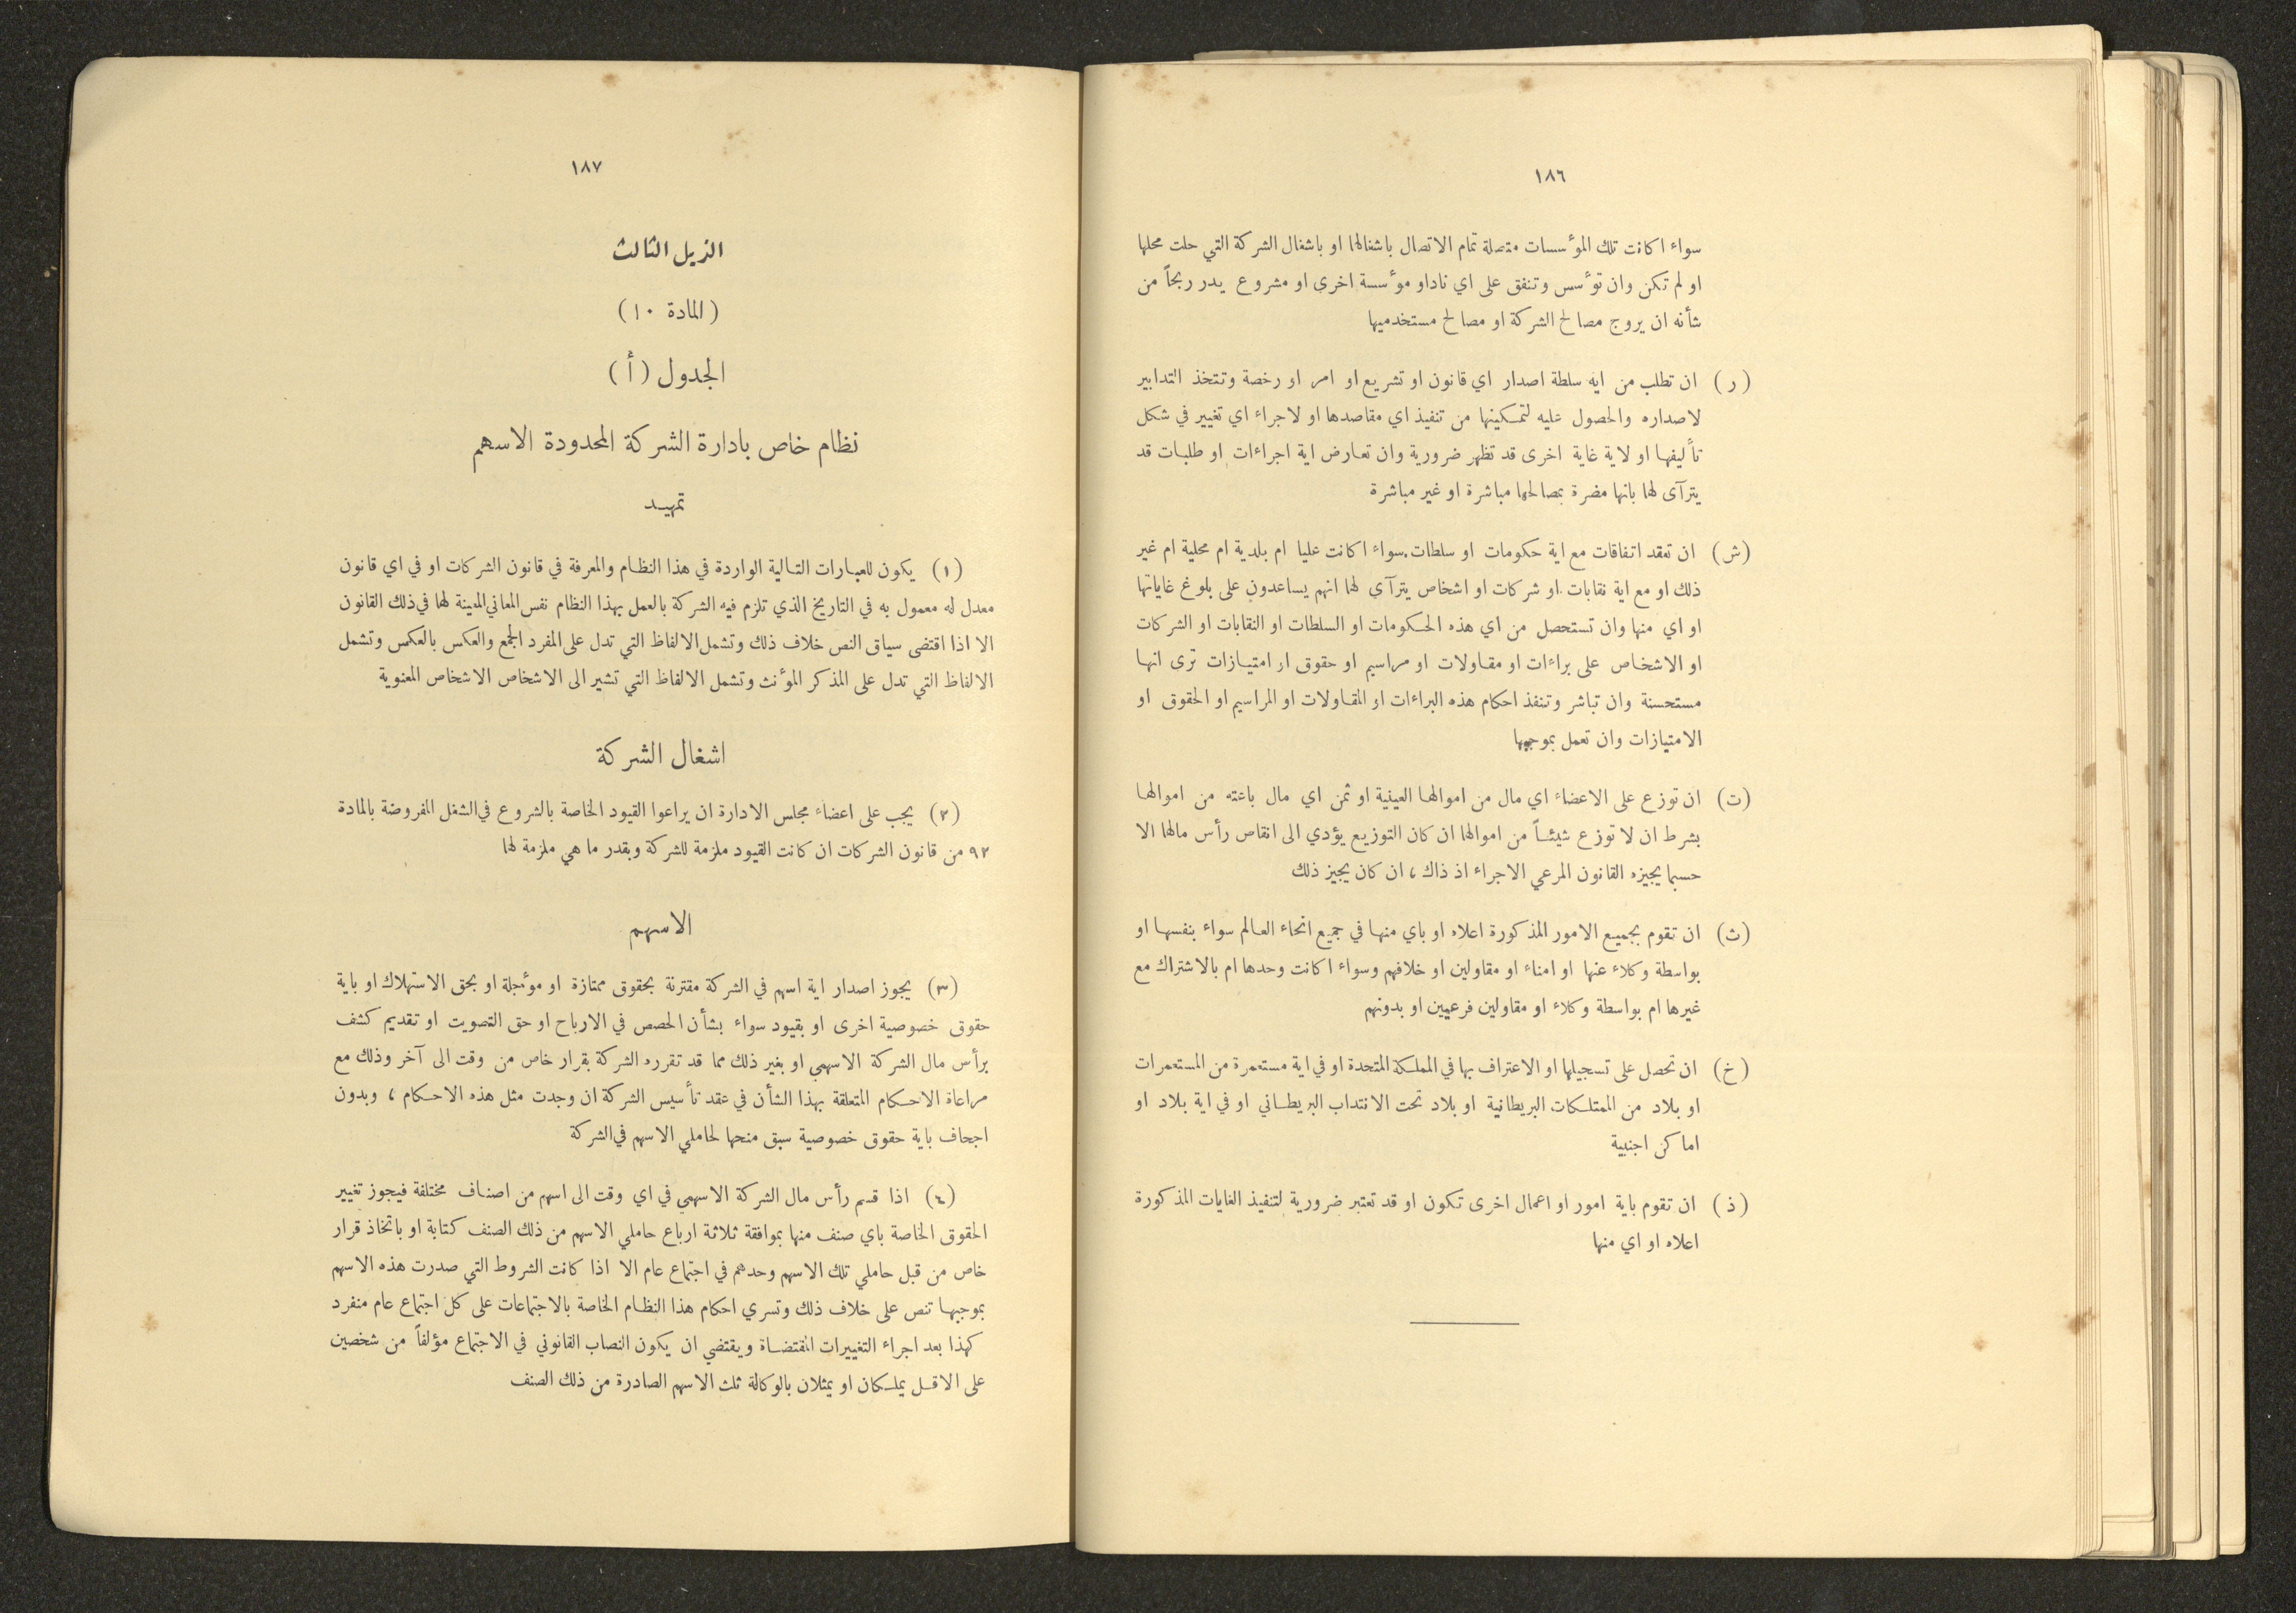 ١٨٦
سواء اكانت تلك المؤسسات متصلة تمام الاتصال باشغالها او باشغال الشركة التي حلت محلها
او لم تكن وان تؤسس وتنفق على اي ناداو مؤسسة اخرى او مشروع يدر ربحاً من
شأنه ان يروج مصالح الشركة او مصالح مستخدميها
(ر) ان تطلب من ايه سلطة اصدار اي قانون او تشريع او امر او رخصة وتتخذ التدابير
لاصداره والحصول عليه لتمكينها من تنفيذ اي مقاصدها او لاجراء اي تغيير في شكل
تأليفها او لاية غاية اخرى قد تظهر ضرورية وان تعارض اية اجراءات او طلبات قد
يترآى لها بانها مضرة بمصالحها مباشرة او غير مباشرة
(ش) ان تعقد اتفاقات مع اية حكومات او سلطات سواء اكانت عليا ام بلدية ام محلية ام غير
ذلك او مع اية نقابات او شركات او اشخاص يترآى لها انهم يساعدون على بلوغ غاياتها
او اي منها وان تستحصل من اي هذه الحكومات او السلطات او النقابات او الشركات
او الاشخاص على براءات او مقاولات او مراسيم او حقوق او امتيازات ترى انها
مستحسنة وان تباشر وتنفذ احكام هذه البراءات او المقاولات او المراسيم او الحقوق او
الامتيازات وان تعمل بموجبها
(ت) ان توزع على الاعضاء اي مال من اموالها العينية او ثمن اي مال باعته من اموالها
بشرط ان لا توزع شيئاً من اموالها ان كان التوزيع يؤدي الى انقاص رأس مالها الا
حسبما يجيزه القانون المرعي الاجراء اذ ذاك ، ان كان يجيز ذلك
(ث) ان تقوم بجميع الامور المذكورة اعلاه او باي منها في جميع انحاء العالم سواء بنفسها او
بواسطة وكلاء عنها او امناء او مقاولين او خلافهم وسواء اكانت وحدها ام بالاشتراك مع
غيرها ام بواسطة وكلاء او مقاولين فرعيين او بدونهم
(خ) ان تحصل على تسجيلها او الاعتراف بها في المملكة المتحدة او في اية مستعمرة من المستعمرات
او بلاد من الممتلكات البريطانية او بلاد تحت الانتداب البريطاني او في اية بلاد او
اماكن اجنبية
(ذ) ان تقوم باية امور او اعمال اخرى تكون او قد تعتبر ضرورية لتنفيذ الغايات المذكورة
اعلاه او اي منها
١٨٧
الذيل الثالث
(المادة ١٠)
الجدول (أ)
نظام خاص بادارة الشركة المحدودة الاسهم
تمهيد
(١) يكون للعبارات التالية الواردة في هذا النظام والمعرفة في قانون الشركات او في اي قانون
معدل له معمول به في التاريخ الذي تلزم فيه الشركة بالعمل بهذا النظام نفس المعاني المعينة لها في ذلك القانون
الا اذا اقتضى سياق النص خلاف ذلك وتشمل الالفاظ التي تدل على المفرد الجمع والعكس بالعكس وتشمل
الالفاظ التي تدل على المذكر المؤنث وتشمل الالفاظ التي تشير الى الاشخاص الاشخاص المعنوية
اشغال الشركة
(٢) يجب على اعضاء مجلس الادارة ان يراعوا القيود الخاصة بالشروع في الشغل المفروضة بالمادة
٩٢ من قانون الشركات ان كانت القيود ملزمة للشركة وبقدر ما هي ملزمة لها
الاسهم
(٣) يجوز اصدار اية اسهم في الشركة مقترنة بحقوق ممتازة او مؤجلة او بحق الاستهلاك او باية
حقوق خصوصية اخرى او بقيود سواء بشأن الحصص في الارباح او حق التصويت او تقديم كشف
برأس مال الشركة الاسهمي او بغير ذلك مما قد تقرره الشركة بقرار خاص من وقت الى آخر وذلك مع
مراعاة الاحكام المتعلقة بهذا الشأن في عقد تأسيس الشركة ان وجدت مثل هذه الاحكام ، وبدون
اجحاف باية حقوق خصوصية سبق منحها لحاملي الاسهم في الشركة
(٤) اذا قسم رأس مال الشركة الاسهمي في اي وقت الى اسهم من اصناف مختلفة فيجوز تغيير
الحقوق الخاصة باي صنف منها بموافقة ثلاثة ارباع حاملي الاسهم من ذلك الصنف كتابة او باتخاذ قرار
خاص من قبل حاملي تلك الاسهم وحدهم في اجتماع عام الا اذا كانت الشروط التي صدرت هذه الاسهم
بموجبها تنص على خلاف ذلك وتسري احكام هذا النظام الخاصة بالاجتماعات على كل اجتماع عام منفرد
كهذا بعد اجراء التغييرات المقتضاة ويقتضي ان يكون النصاب القانوني في الاجتماع مؤلفاً من شخصين
على الاقل يملكان او يمثلان بالوكالة ثلث الاسهم الصادرة من ذلك الصنف